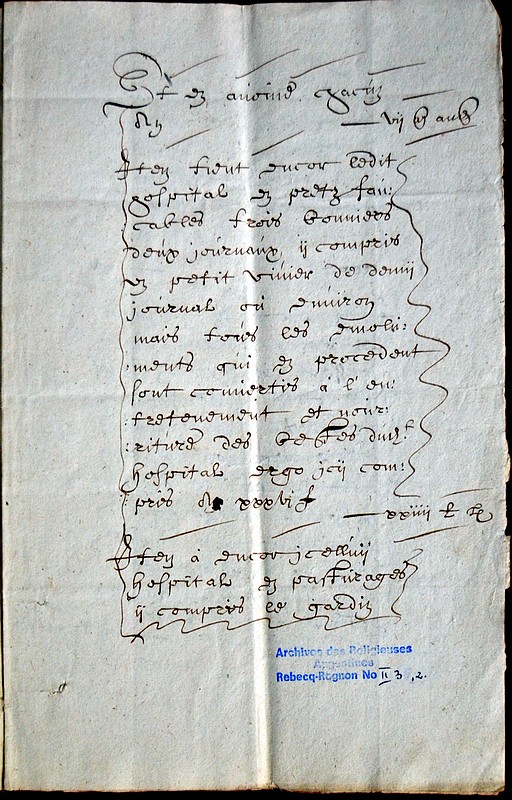 Et en avoine
vii
Item tient encor ledit
hospital en pretz fau:
cables trois bonniers
deux journaux, ij compris
un petit vivier de demij
journal ou environ
mais tous les emolu:
ments qui en procedent
sont convertis à l'en:
:tretenement et nour:
:riture des bestes dud.t
hospital ergo jcij com:
:pris xxxvi
xxiiii
Item à encor jcelluij
hospital en pasturages
ij compris le gardin
Archives des Religieuses
Augustines
Rebecq-Rognon No II 3,2.